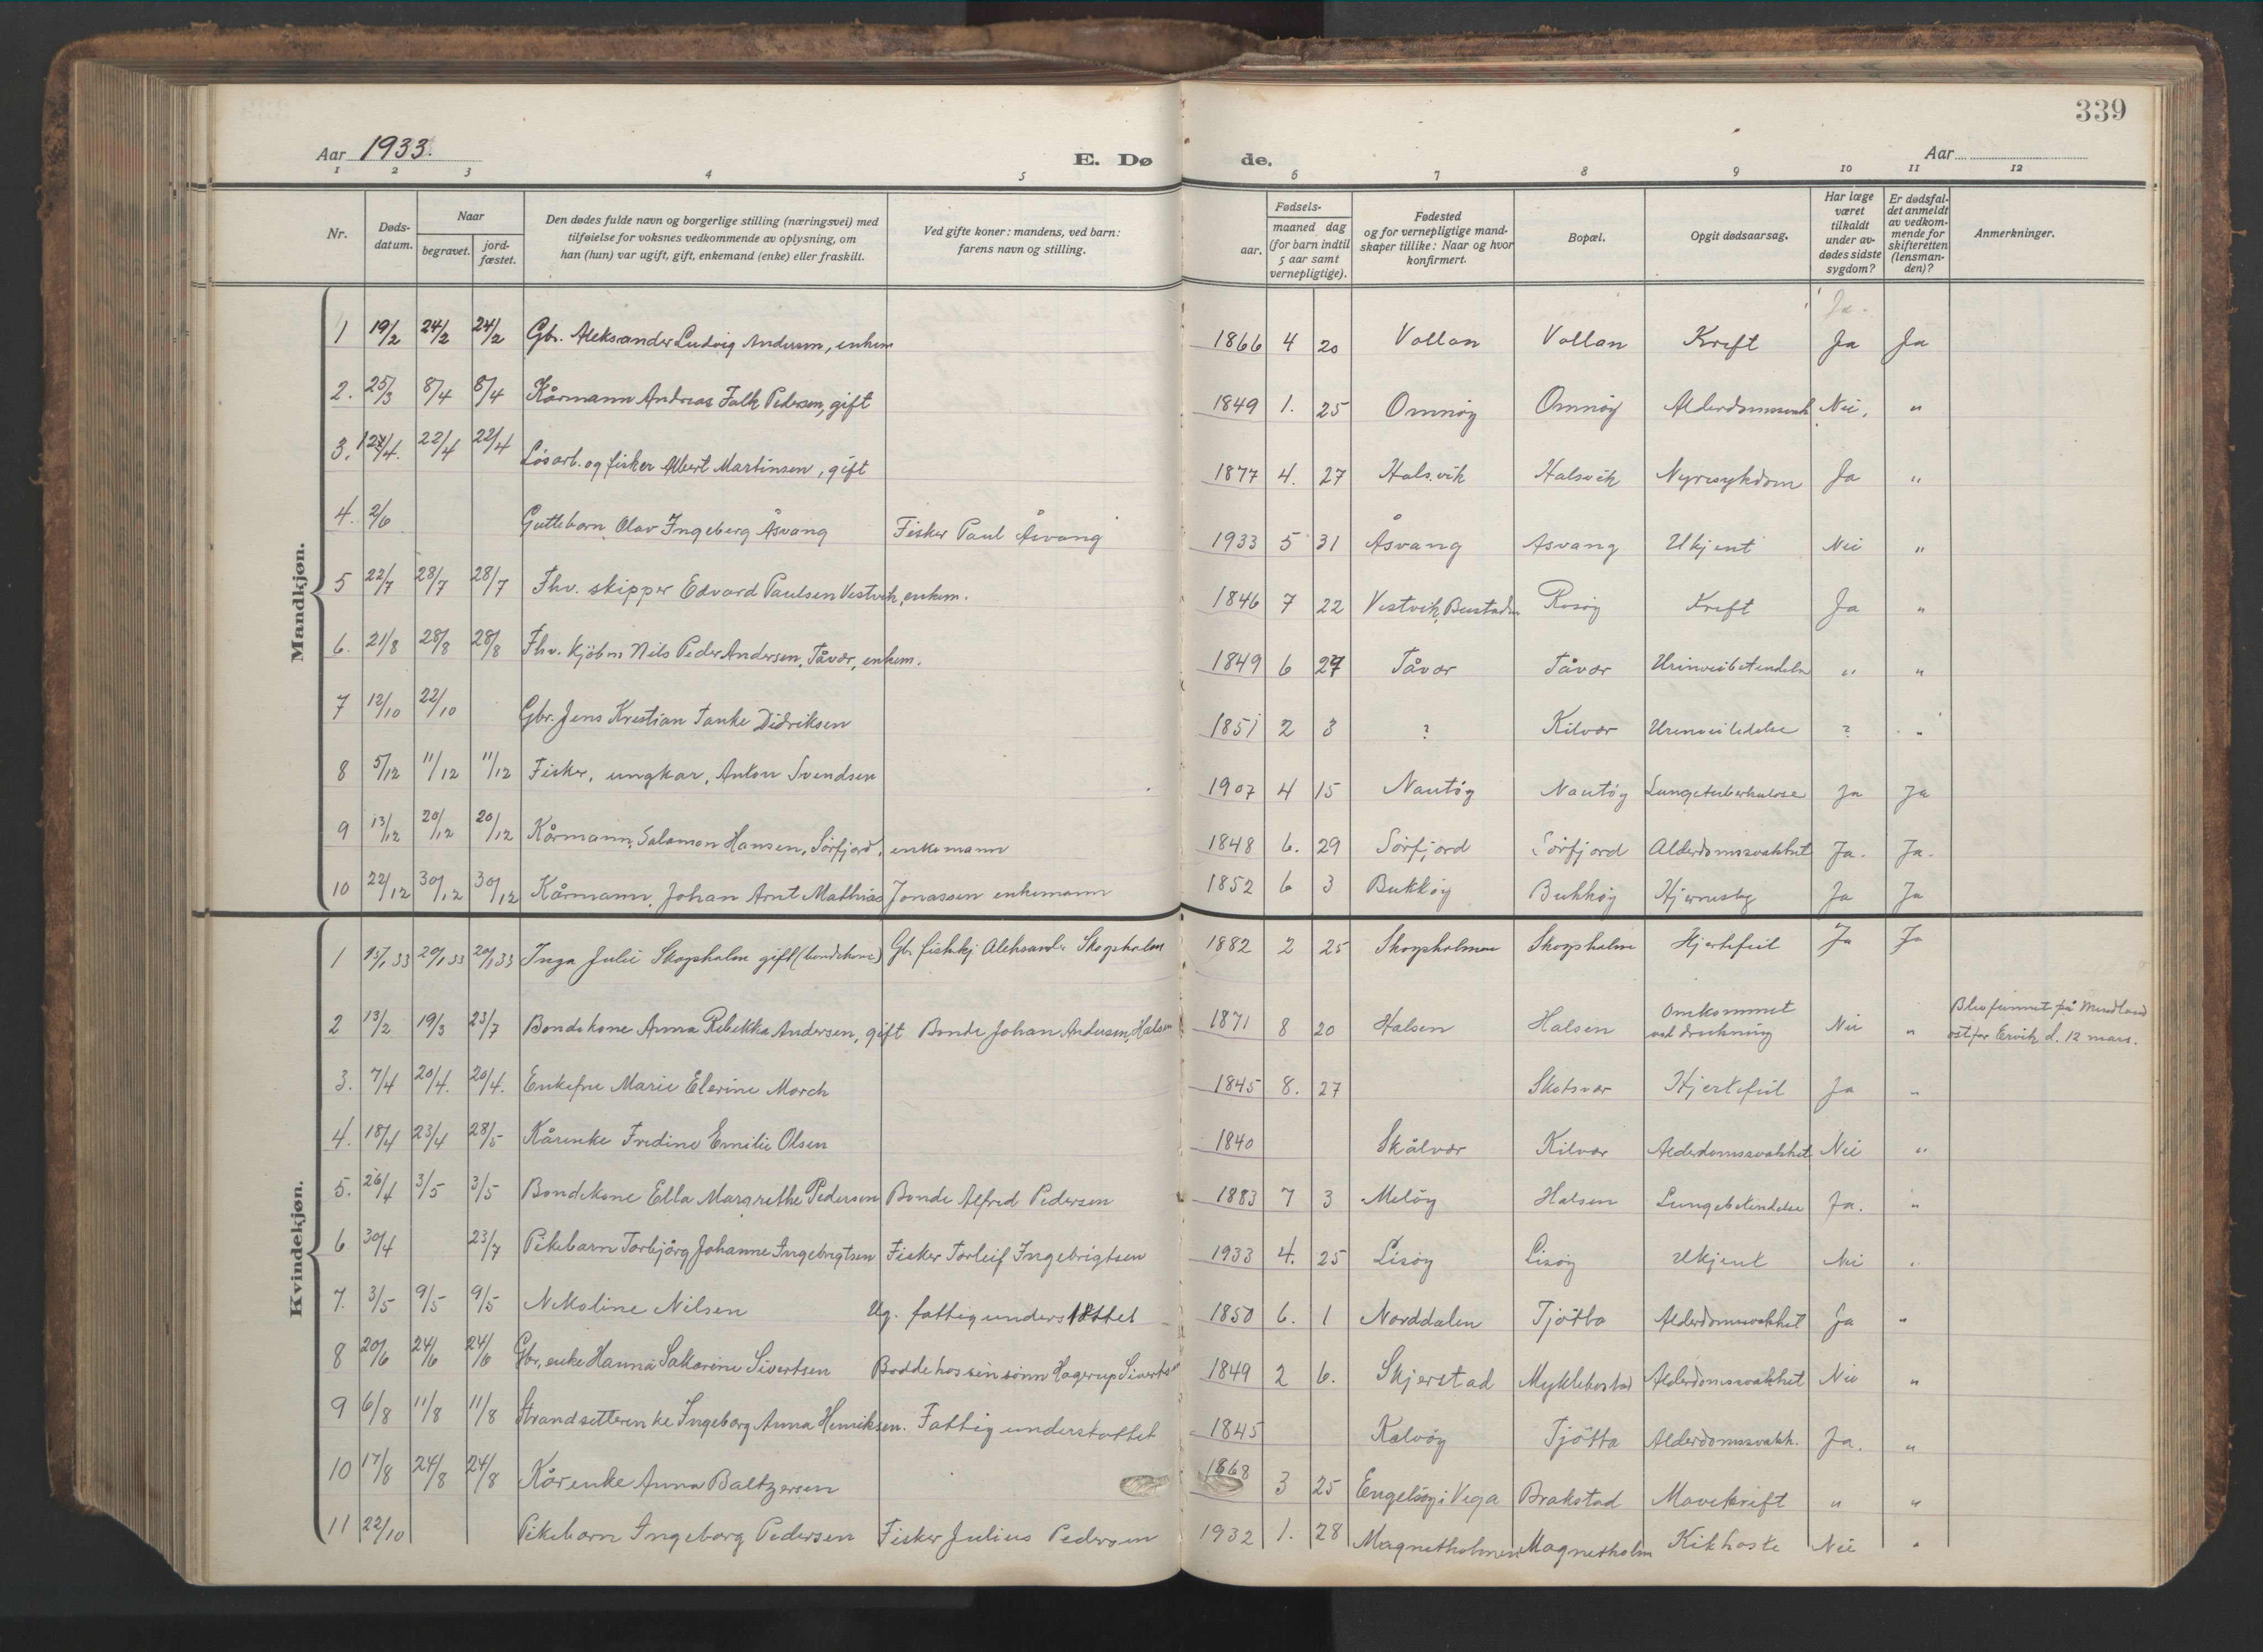 339
Aar 1933. E. Dø de. Aar
1 2 3 4 5 6 7 8 9 10 11 12
Nr. Døds-datum. Naar begravet. jord-fæstet. Den dødes fulde navn og borgerlige stilling (næringsvei) med tilføielse for voksnes vedkommende av oplysning, om han (hun) var ugift, gift, enkemand (enke) eller fraskilt. Ved gifte koner: mandens, ved barn: farens navn og stilling. Fødsels- aar. maaned dag (for barn indtil 5 aar samt vernepligtige). Fødested og for vernepligtige mand-skaper tillike: Naar og hvor konfirmert. Bopæl. Opgit dødsaarsag. Har læge været tilkaldt under av-dødes sidste sygdom? Er dødsfal-det anmeldt av vedkom-mende for skifteretten (lensman-den)? Anmerkninger.
Mandkjøn.
Ja.
1 19/2 24/2 24/2 Gbr. Aleksander Ludvig Andersen, enkem 1866 4 20 Vollan Vollan Kreft Ja Ja
2. 25/3 8/4 8/4 Kårmann Andreas Falk Pedersen, gift 1849 1. 25 Omnöy Omnöy Alderdomssvakh Nei. "
3. 22/4 22/4 Lösarb. og fisker Albert Martinsen, gift 1877 4. 27 Halsvik Halsvik Nyresykdom Ja "
4. 2/6 Guttebarn Olav Ingeberg Åsvang Fisker Paul Åsvang 1933 5 31 Åsvang Åsvang Ukjent Nei "
5 22/7 28/7 28/7 Fhv. skipper Edvard Paulsen Vestvik, enkem. 1846 7 22 Vestvik, Rosöy Kreft Ja "
6. 21/8 28/8 28/8 Fhv. kjöbm Nils Peder Andersen, Tåvær, enkem. 1849 6 27 Tåvær Tåvær Urinveisbetendelse " "
7 12/10 22/10 Gbr. Jens Kristian Tanke Didriksen 1851 2 3 ? Kilvær Urinveislidelse ? "
8 5/12 11/12 11/12 Fisker, ungkar, Anton Svendsen 1907 4 15 Nautöy Nautöy Lungetuberkulose Ja Ja
9 13/12 20/12 20/12 Kårmann, Salamon Hansen, Sörfjord, enkemann 1848 6. 29 Sörfjord Sörfjord Alderdomssvakhet Ja. Ja.
10 22/12 30/12 30/12 Kårmann, Johan Arnt Mathias Jonassen enkemann 1852 6 3 Bukköy Bukköy Hjerneslag Ja Ja
Kvindekjøn.
1 15/1 33 20/1 33 20/1 33 Inga Julie Skogsholm gift (bondekone) Gb. fiskekj. Aleksander Skogsholm 1882 2 25 Skogsholmen Skogsholm Hjertefeil Ja Ja
2 13/2 19/3 23/7 Bondekone Anna Rebekka Andersen, gift Bonde Johan Andersen, Halsen 1871 8 20 Halsen Halsen Omkommet ved drukning Nei " Blev funnet på Mindland öst for Ervik d. 12 mars.
3. 7/4 20/4. 20/4. Enkefru Marie Elerine Morch 1845 8. 27 Skotsvær Hjertefeil Ja "
4. 18/4 23/4 28/5 Kårenke Fredine Emilie Olsen 1840 Skålvær Kilvær Alderdomssvakhet Nei "
5. 26/4 3/5 3/5 Bondekone Ella Margrethe Pedersen Bonde Alfred Pedersen 1883 7 3 Melöy Halsen Lungebetendelse Ja. "
6 30/4 23/7 Pikebarn Torbjörg Johanne Ingebrigtsen Fisker Torleif Ingebrigtsen 1933 4. 25 Lisöy Lisöy Ukjent Nei "
7. 3/5 9/5 9/5 Nikoline Nilsen Ug. fattigunderstöttet 1850 6. 1 Norddalen Tjötta Alderdomssvakhet Ja "
8 20/6 24/6 24/6 Gbr. enke Hanna Sakarine Sivertsen Bodde hos sin sönn Hagerup Sivertsen 1849 2 6. Skjerstad Myklebostad Alderdomssvakhet Nei "
9 6/8 11/8 11/8 Strandsitterenke Ingeborg Anna Henriksen. Fattigunderstöttet 1845 Kalvöy Tjötta Alderdomssvakh. Ja. "
10 17/8 24/8 24/8 Kårenke Anna Baltzersen 1868 3 25 Engelsöy i Vega Brakstad Mavekreft " "
11 22/10 Pikebarn Ingeborg Pedersen Fisker Julius Pedersen 1932 1. 28 Magnetholmen Magnetholm Kikhoste Nei "